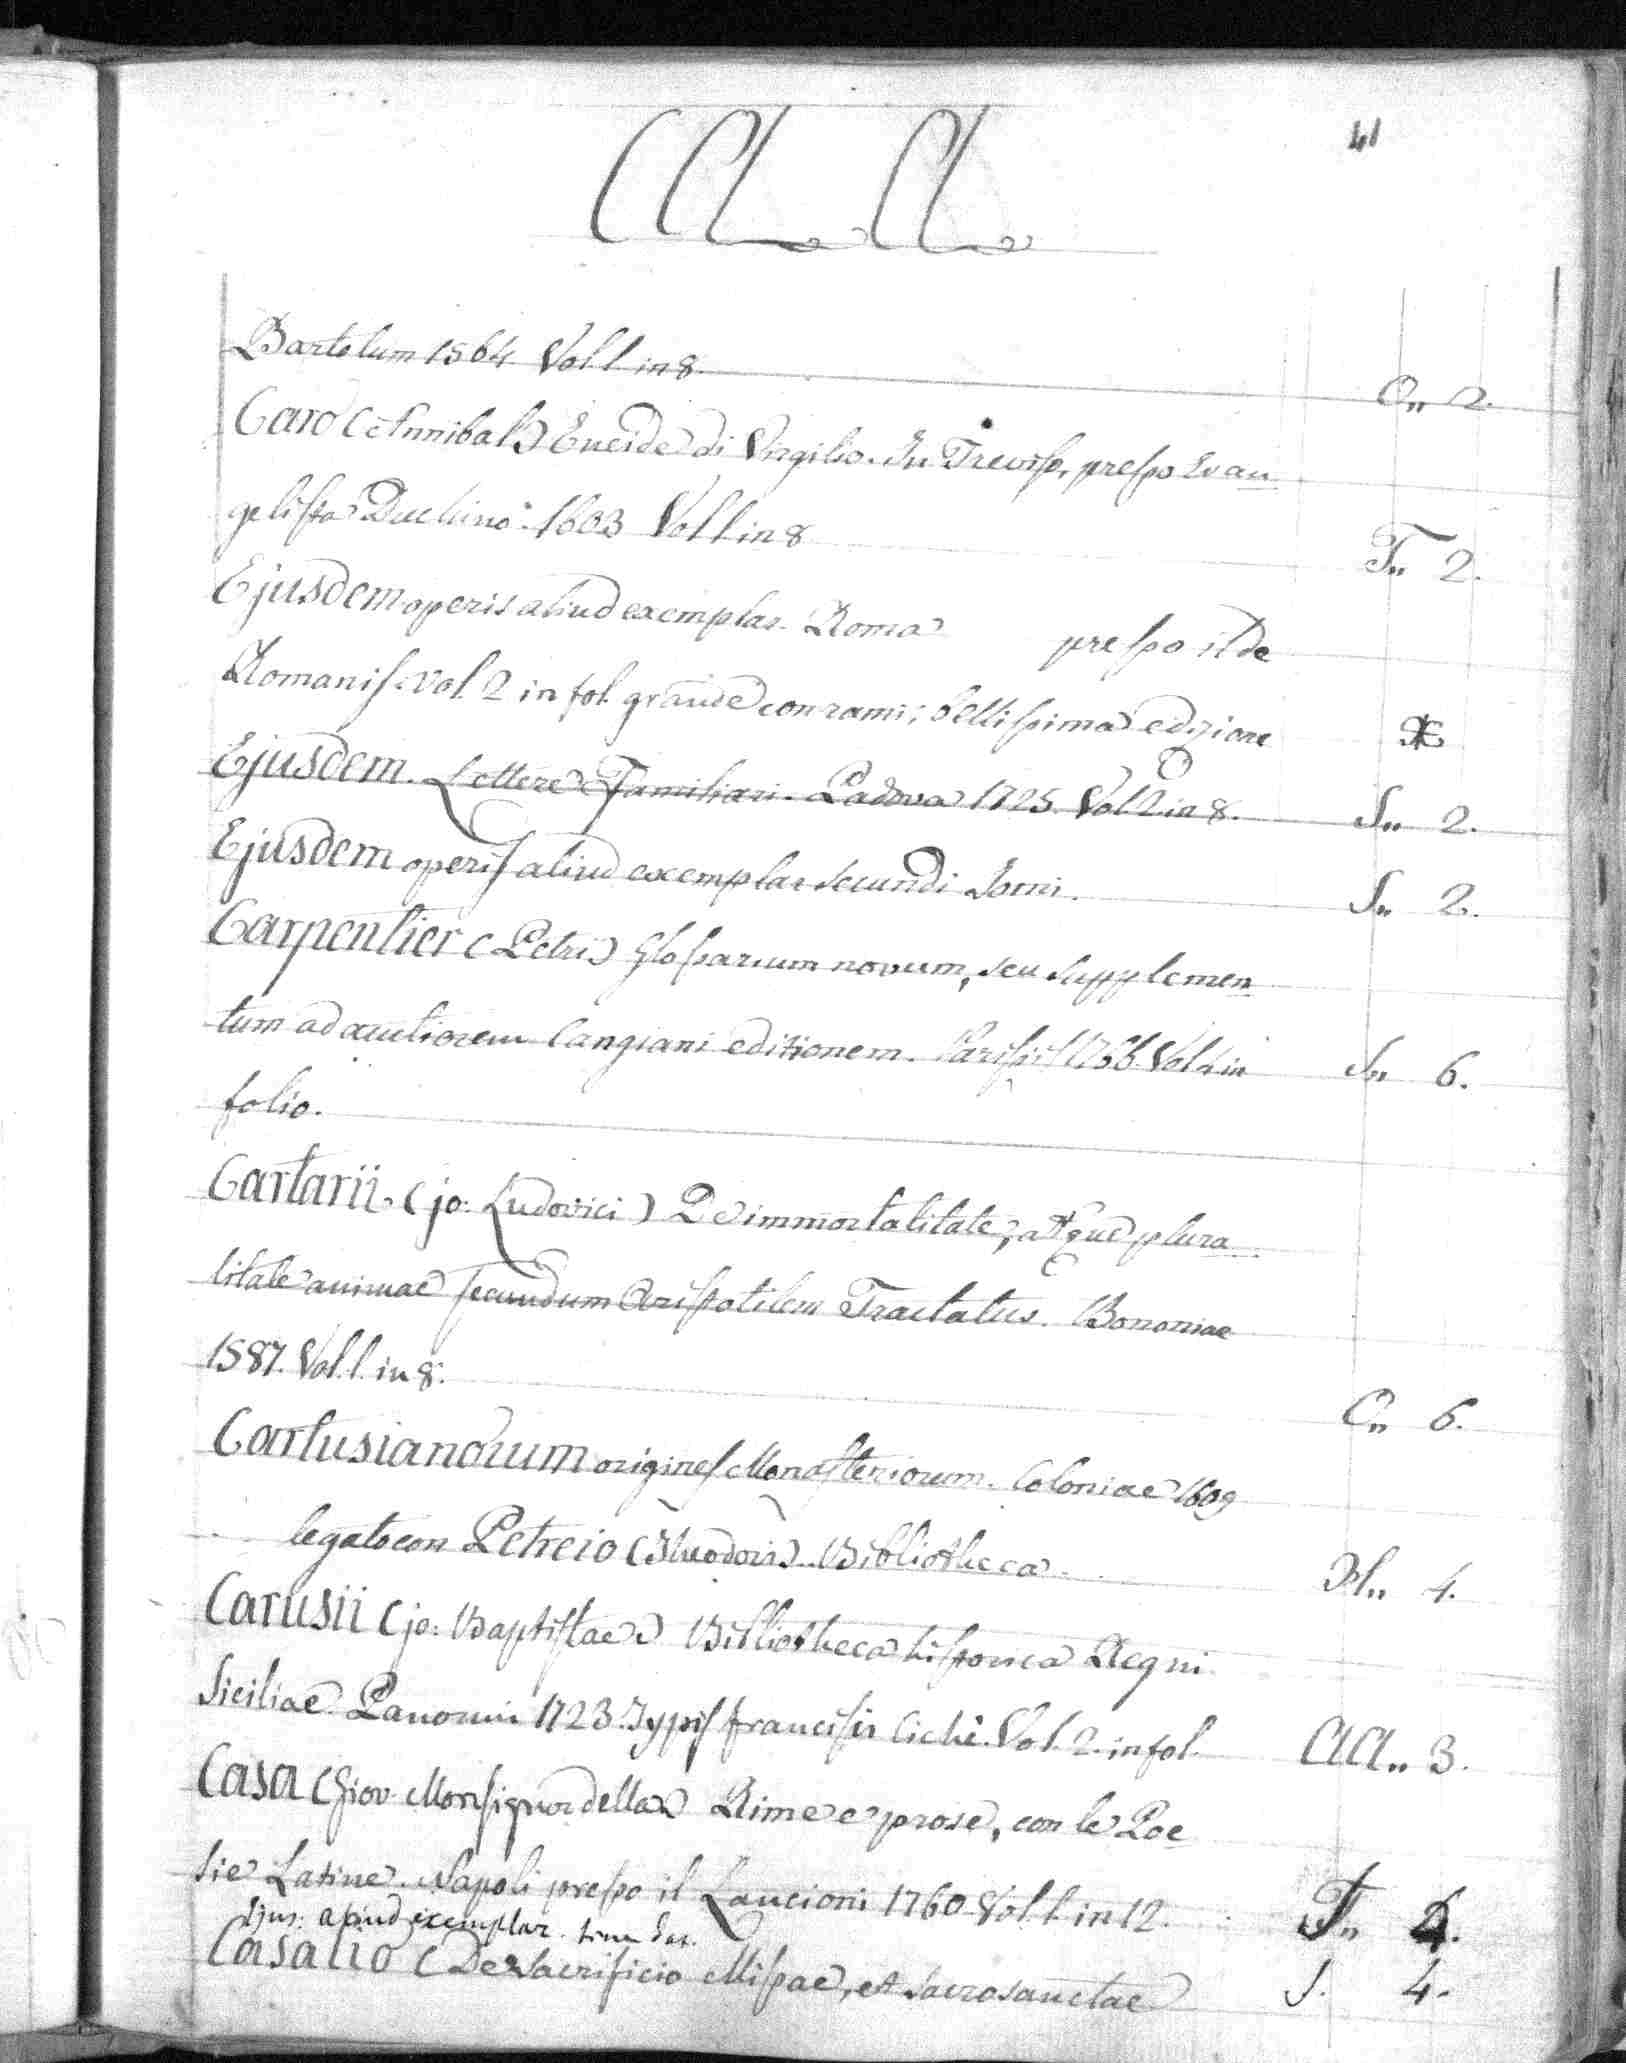 41
CA CA
Bartolum 1564 Vol. 1. in 8. O,, 2.
Caro (Annibal) Eneide di Virgilio. In Treviso, presso Evan
gelista Deuchino. 1603 Vol 1 in 8 T,, 2.
Ejusdem operis aliud exemplar. Roma presso il de
Romanis. vol. 2 in fol. grande con rami; bellissima edizione
Ejusdem. Lettere Familiari. Padova 1725. Vol. 2 in 8. S,, 2.
Ejusdem operis aliud exemplar secundi Tomi. S,, 2.
Carpentier (Petri) Glossarium novum, seu supplemen
tum ad auctiorem Cangiani editionem. Parisiis 1766. Vol. 4 in S,, 6.
folio.
Cartarii (jo: Ludovici) De immortalitate, atque plura
litate animae secundum Aristotilem Tractatus. Bononiae
1587. Vol. 1. in 8. C,, 6.
Cartusianorum origines Monasteriorum. Coloniae 1609
legato con Petreio (Theodori) Bibliotheca 4.
Carusii (jo: Baptistae) Bibliotheca historica Regni
Siciliae Panormi 1723. Typis Francisci Cichè. Vol. 2. in fol. AA,, 3.
Casa (Giov. Monsignor della) Rime e prose, con le Poe
sie Latine. Napoli presso il Lancioni 1760. Vol. 1. in 12. T,,
Ejus: aliud exemplar.
Casalio (De Sacrificio Missae, et Sacrosanctae S. 4.